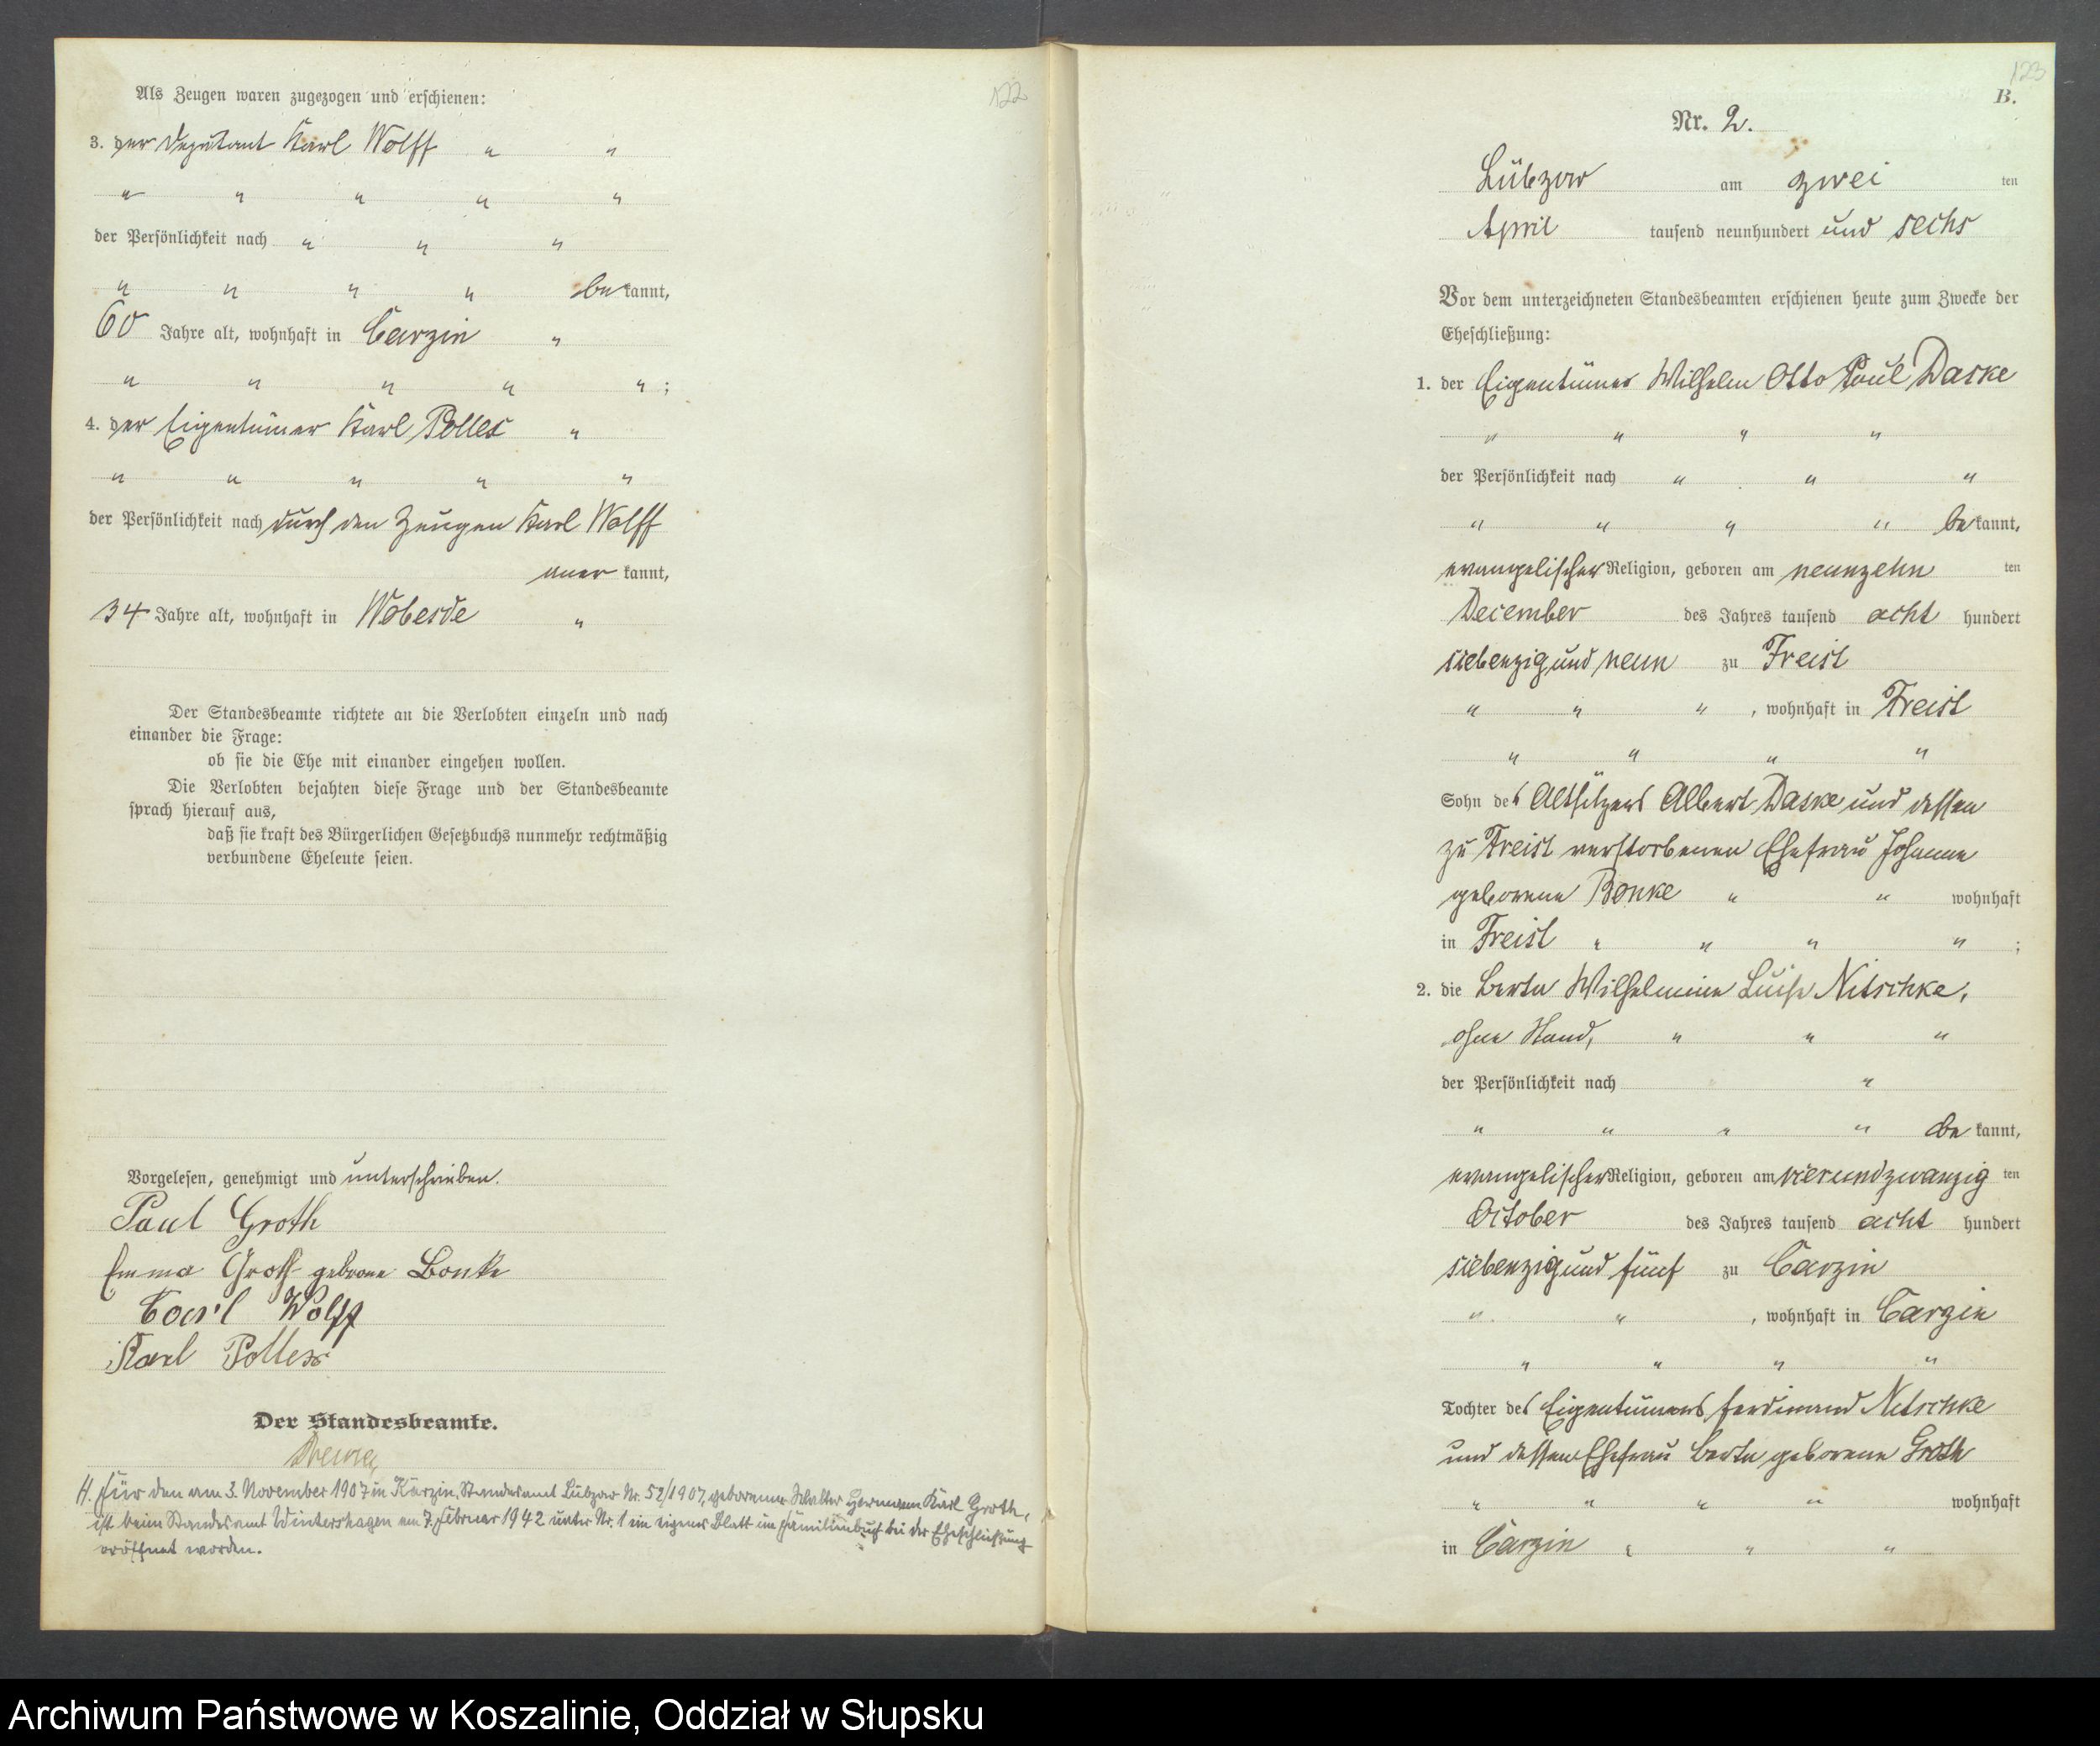 122
Als Zeugen waren zugezogen und erschienen:
3. der Deputant Karl Wolff " "
" " " " "
der Persönlichkeit nach " " "
" " " " be kannt,
60 Jahre alt, wohnhaft in Carzin "
" " " " " ;
4. der Eigentümer Karl Polles "
" " " " "
der Persönlichkeit nach durch den Zeugen Karl Wolff
aner kannt,
34 Jahre alt, wohnhaft in Wobesde "
Der Standesbeamte richtete an die Verlobten einzeln und nach
einander die Frage:
ob sie die Ehe mit einander eingehen wollen.
Die Verlobten bejahten diese Frage und der Standesbeamte
sprach hierauf aus,
daß sie kraft des Bürgerlichen Gesetzbuchs nunmehr rechtmäßig
verbundene Eheleute seien.
Vorgelesen, genehmigt und unterschrieben.
Paul Groth
Emma Groth geborene Bonke
Carl Wolff
Karl Polless
Der Standesbeamte.
H. Für den am 3. November 1907 in Karzin, Standesamt Lübzow Nr. 52/1907, geborenen Walter Hermann Karl Groth,
ist beim Standesamt Wintershagen am 7. Februar 1942 unter Nr. 1 ein eigenes Blatt im Familienbuch bei der Eheschließung
eröffnet worden.
123
B.
Nr. 2.
Lübzow am zwei ten
April tausend neunhundert und sechs
Vor dem unterzeichneten Standesbeamten erschienen heute zum Zwecke der
Eheschließung:
1. der Eigentümer Wilhelm Otto Paul Daske
" " " "
der Persönlichkeit nach " " "
" " " " be kannt,
evangelischer Religion, geboren am neunzehn ten
December des Jahres tausend acht hundert
siebenzig und neun zu Freist
" " " , wohnhaft in Freist
" " " "
Sohn des Altsitzers Albert Daske und dessen
zu Freist verstorbenen Ehefrau Johanne
geborene Bonke " " wohnhaft
in Freist " " " " ;
2. die Berta Wilhelmine Luise Nitschke,
ohne Stand, " " "
der Persönlichkeit nach "
" " " " be kannt,
evangelischer Religion, geboren am vierundzwanzig ten
October des Jahres tausend acht hundert
siebenzig und fünf zu Carzin
" " , wohnhaft in Carzin
" " " "
Tochter des Eigentümers Ferdinand Nitschke
und dessen Ehefrau Berta geborene Groth
" " " " wohnhaft
in Carzin " " "
Archiwum Państwowe w Koszalinie, Oddział w Słupsku